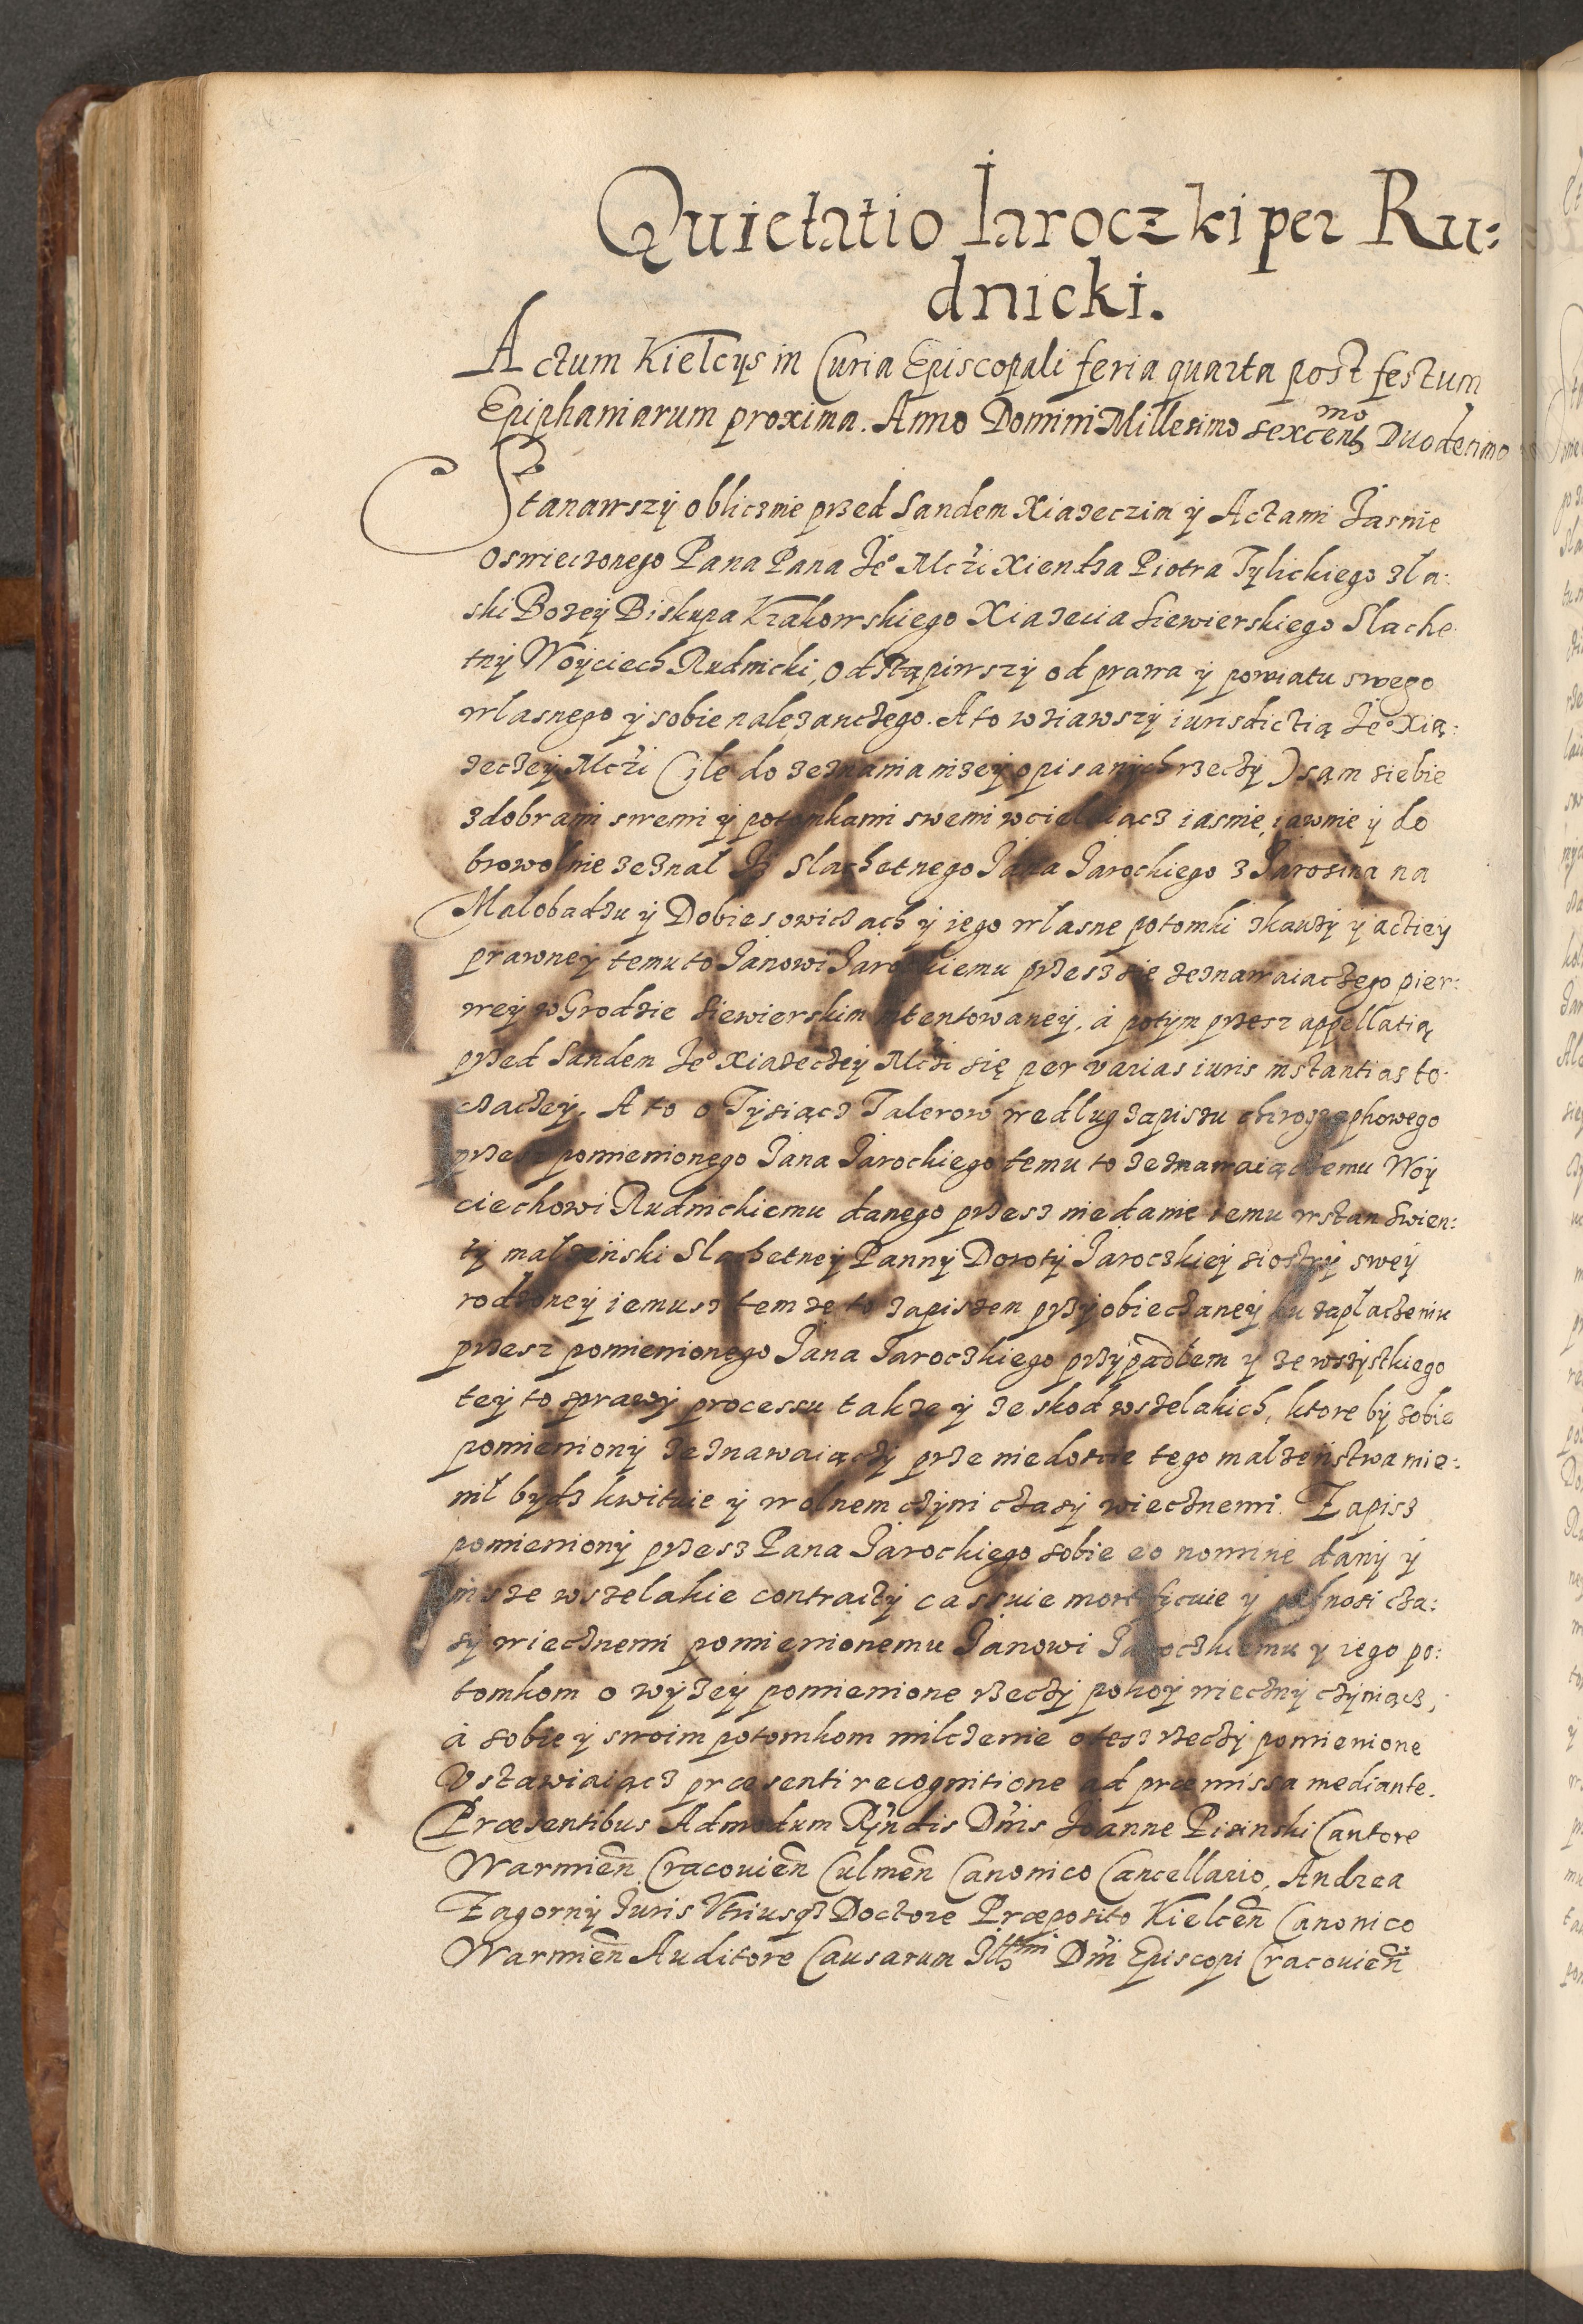 Quietatio Jaroczki per Ru:
dnicki.
Actum Kielcys in Curia Episcopali feria quarta post festum
Epiphaniarum proxima. Anno Domini Millesimo sexcentmo Duodecimo
Stanawszÿ oblicznie przed Sandem Xiazeczim ÿ Actami Jasnie
oswieczonego Pana Pana Jeo Mczi Xiendza Piotra Tylickiego z la:
ski Bozeÿ Biskupa Krakowskiego Xiazecia Siewierskiego Slache
tnÿ Woÿciech Rudnicki, Odstąpiwszÿ od prawa ÿ powiatu swego
wlasnego ÿ sobie nalezanczego. A to wziawszÿ iurisdictią Jeo Xią:
zeczeÿ Mczi (ile do zeznania nizeÿ opisanÿch rzeczÿ) sąm siebie
z dobrami swemi ÿ potomkami swemi wcielaiącz iasnie, iawnie ÿ do
browolnie zeznal Jz Slachetnego Jana Jarockiego z Jarosina na
Malobadzu ÿ Dobiesowiczach ÿ iego wlasne potomki zkauzÿ ÿ actieÿ
prawneÿ temu to Janowi Jarockiemu przesz sie zeznawaiaczego pier:
weÿ w Grodzie Siewierskim intentowaneÿ, á potÿm przesz appellatią
przed Sandem Jeo Xiazeczeÿ Mczi się per varias iuris instantias to:
czaczeÿ. A to o Tÿsiącz Talerow wedlug zapiszu chirographowego
przesz pomienionego Jana Jarockiego temu to zeznawaiączemu Woÿ
ciechowi Rudnickiemu danego przesz niedanie iemu w stan Swien:
tÿ malzeński Slachetneÿ Pannÿ Dorotÿ Jaroczkieÿ siostrÿ sweÿ
rodzoneÿ iemusz tem ze to zapiszem przÿobieczaneÿ ku zaplaczeniu
przesz pomienionego Jana Jaroczkiego przÿpadlem ÿ ze wszÿstkiego
teÿ to sprawÿ processu takze ÿ ze skod wszelakich, ktore bÿ sobie
pomienionÿ zeznawaiączÿ prze niedoscie tego malzeństwa mie:
nil bydz kwituie ÿ wolnem czÿni czasÿ wiecznemi. Zapisz
pomienionÿ przesz Pana Jarockiego sobie eo nomine danÿ ÿ
insze wszelakie contractÿ cassuie mortificuie ÿ wnosi cza:
sÿ wiecznemi pomienionemu Janowi Jaroczkiemu ÿ iego po:
tomkom o wÿzeÿ pomienione rzeczÿ pokoÿ wiecznÿ czÿniącz,
á sobie ÿ swoim potomkom milczenie o tesz rzeczÿ pomienione
Vstawiaiącz præsenti recognitione ad præmissa mediante.
Præsentibus Admodum Rñdis Dñis Joanne Pisinski Cantore
Warmieñ Cracovieñ Culmeñ Canonico Cancellario, Andrea
Zagornÿ Juris Vtriusq3 Doctore Præposito Kielceñ Canonico
Warmieñ Auditore Causarum Illmi Dñi Episcopi Cracovieñ